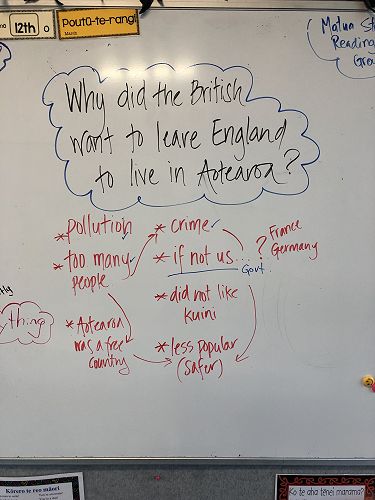 12th o
Poutū-te-rangi
March
Matua St
Reading
Grou
Why did the British
want to leave England
to live in Aotearoa?
* pollution
* too many
people
* Aotearoa
was a free
country
* crime
* if not us...?
Govt
France
Germany
* did not like
kuini
* less popular
(safer)
thing
Kōrero te reo māori
Ko te aha tēnei marama?